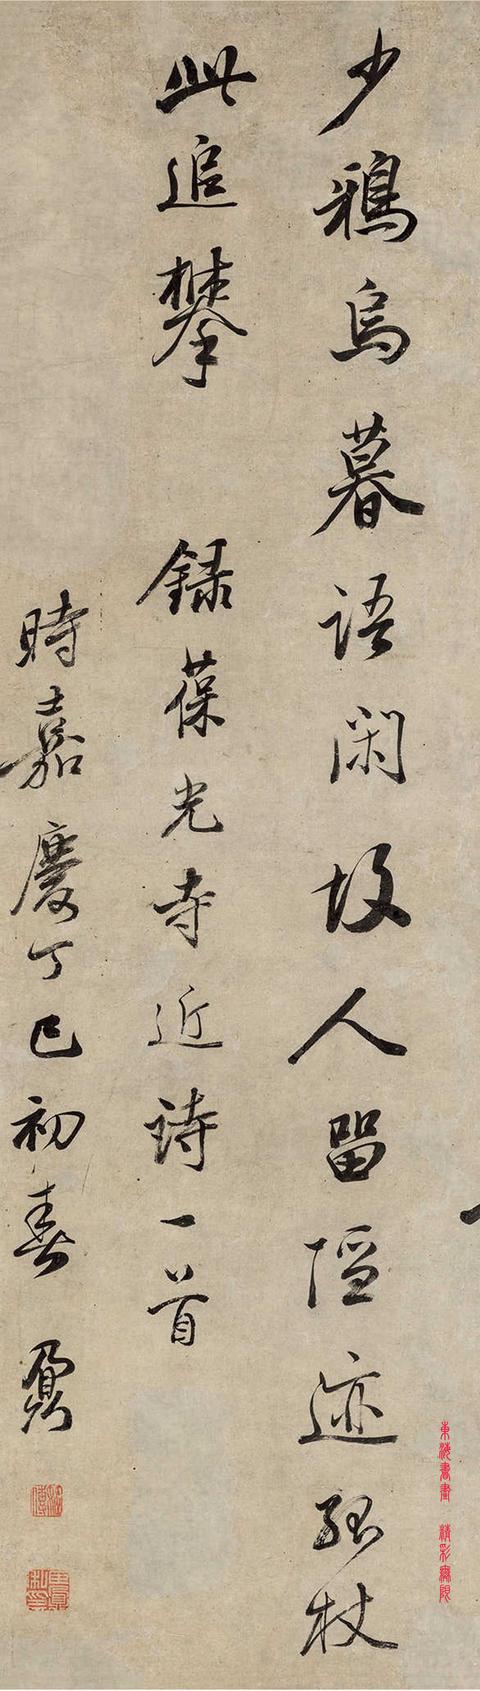 少鴉烏暮語閑故人留隱迹孤杖
此追攀 録葆光寺近詩一首
時嘉慶丁巳初春 鼐
東海書畫 精彩無限